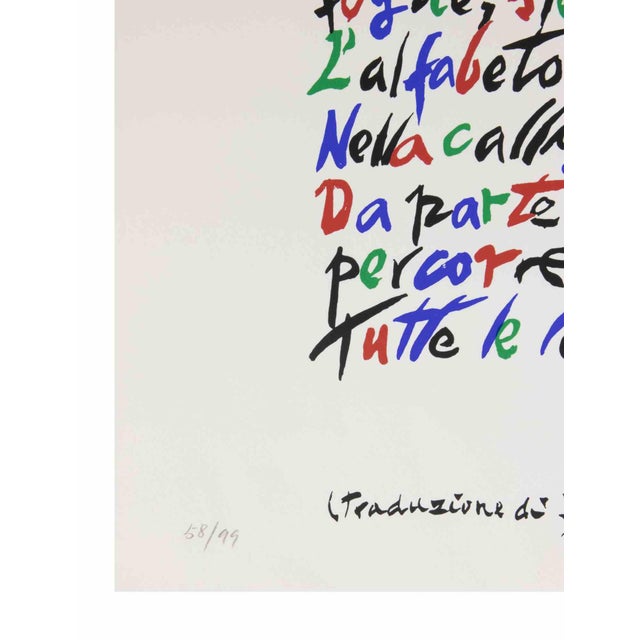 L'alfabeto
Nella call
Da parte
percorre
Tutte le
(traduzione di
58/99